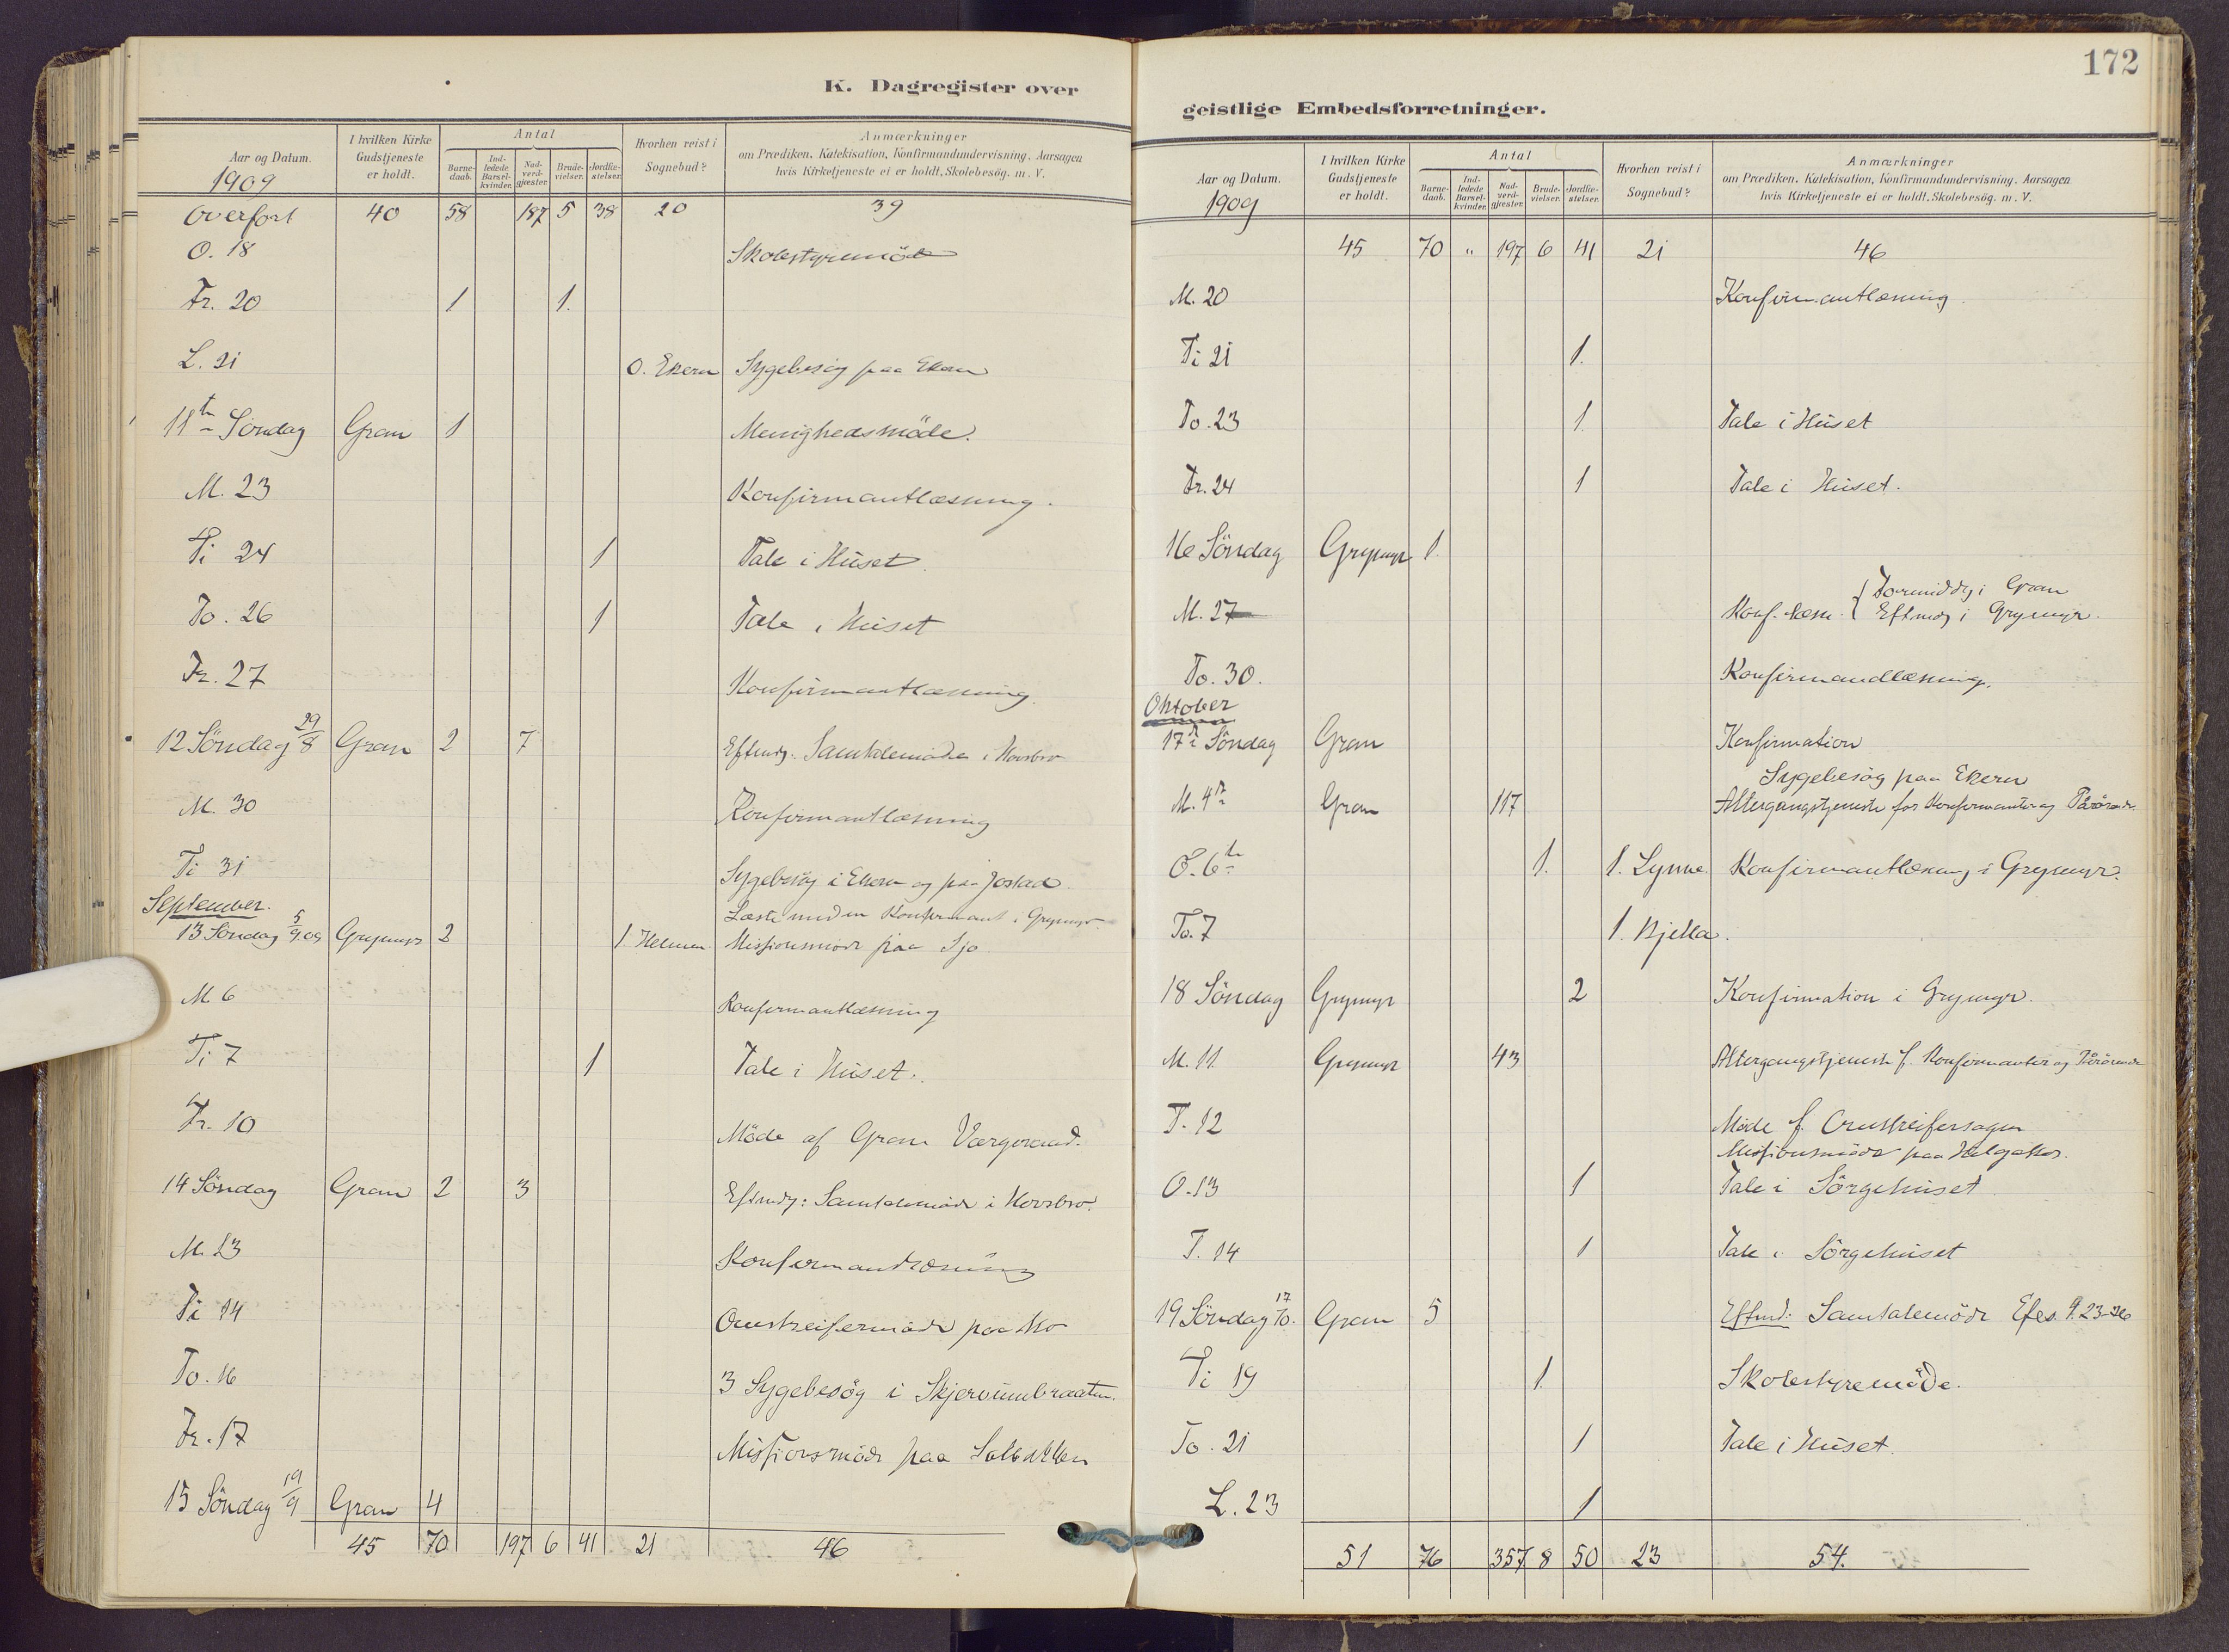 K. Dagregister over
Aar og Datum. 1909 | I hvilken Kirke Gudstjeneste er holdt. | Antal: Barne-daab. | Ind-ledede Barsel-kvinder. | Nad-verd-gjæster. | Brude-vielser. | Jordfæ-stelser. | Hvorhen reist i Sognebud? | Anmærkninger om Prædiken, Katekisation, Konfirmandundervisning. Aarsagen hvis Kirketjeneste ei er holdt. Skolebesög. m. V.
Overfört 40 58 187 5 38 20 39
O. 18 Skolestyremöde
Fr. 20 1 1.
L. 21 O. Ekern Sygebesög paa Ekern
11te Söndag Gran 1 Menighedsmöde.
M. 23 Konfirmantlæsning.
Ti 24 1 Tale i Huset.
To. 26 1 Tale i Huset
Fr. 27 Konfirmantlæsning.
12 Söndag 29/8 Gran 2 7 Eftmdg. Samtalemöde i Hovsbro
M. 30 Konfirmantlæsning
Ti 31 Sygebesög i Ekern og paa Jostad.
September. Læste med en Konfirmant i Grymyr.
13 Söndag 5/9.09 Grymyr 2 1. Helmen Missionsmöde paa Sjo
M. 6 Konfirmantlæsning
Ti 7 1 Tale i Huset.
Fr. 10 Möde af Gran Værgeraad.
14 Söndag Gran 2 3 Eftmdg: Samtalemöde i Hovsbro.
M. 13 Konfirmandlæsning
Ti 14 Omstreifermöde paa Mo
To. 16 3 Sygebesög i Skjervumbraaten.
Fr. 17 Missionsmöde paa
15 Söndag 19/9 Gran 4
45 70 197 6 41 21 46
172
geistlige Embedsforretninger.
Aar og Datum. 1909 | I hvilken Kirke Gudstjeneste er holdt. | Antal: Barne-daab. | Ind-ledede Barsel-kvinder. | Nad-verd-gjæster. | Brude-vielser. | Jordfæ-stelser. | Hvorhen reist i Sognebud? | Anmærkninger om Prædiken, Katekisation, Konfirmandundervisning. Aarsagen hvis Kirketjeneste ei er holdt. Skolebesög. m. V.
45 70 " 197 6 41 21 46
M. 20 Konfirmantlæsning.
Ti 21 1.
To. 23 1. Tale i Huset
Fr. 24 1 Tale i Huset.
16 Söndag Grymyr 1.
M. 27 Konf. læsn. { Formiddg i Gran
Eftmdg i Grymyr.
To. 30. Konfirmandlæsning.
Oktober
17de Söndag Gran Konfirmation
Sygebesög paa Ekern
M. 4de Gran 117 Altergangstjeneste for Konfirmanter og Pårörende.
O. 6te 1. 1. Lynne. Konfirmantlæsning i Grymyr.
To. 7 1. Bjella.
18 Söndag Grymyr 2 Konfirmation i Grymyr.
M. 11. Grymyr 43 Altergangstjeneste f. Konfirmanter og Pårörende
T. 12 Möde f. Omstreifersagen
Missionsmöde paa Helgaker.
O. 13 1 Tale i Sörgehuset
T. 14 1 Tale i Sörgehuset
19 Söndag 17/10. Gran 5 Eftmd: Samtalemöde Efes. 4.23-26
Ti 19 1. Skolestyremöde.
To. 21 1 Tale i Huset.
L. 23 1
51 76 357 8 50 23 54.